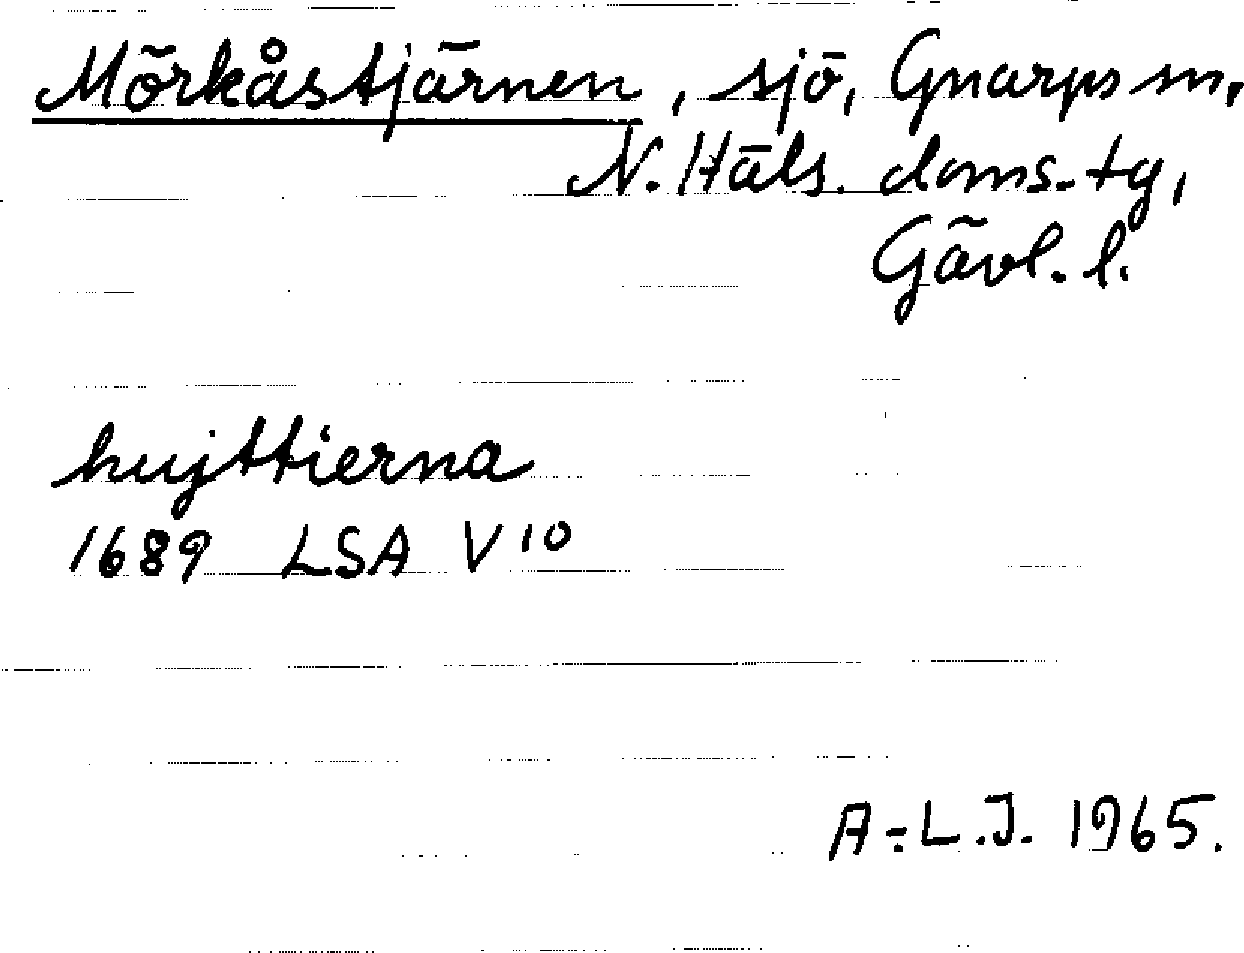 Mörkåstjärnen, sjö, Gnarps sn,
N. Häls. doms.tg,
Gävl. l.
hujttierna
1689 LSA V10
A.-L.J. 1965.